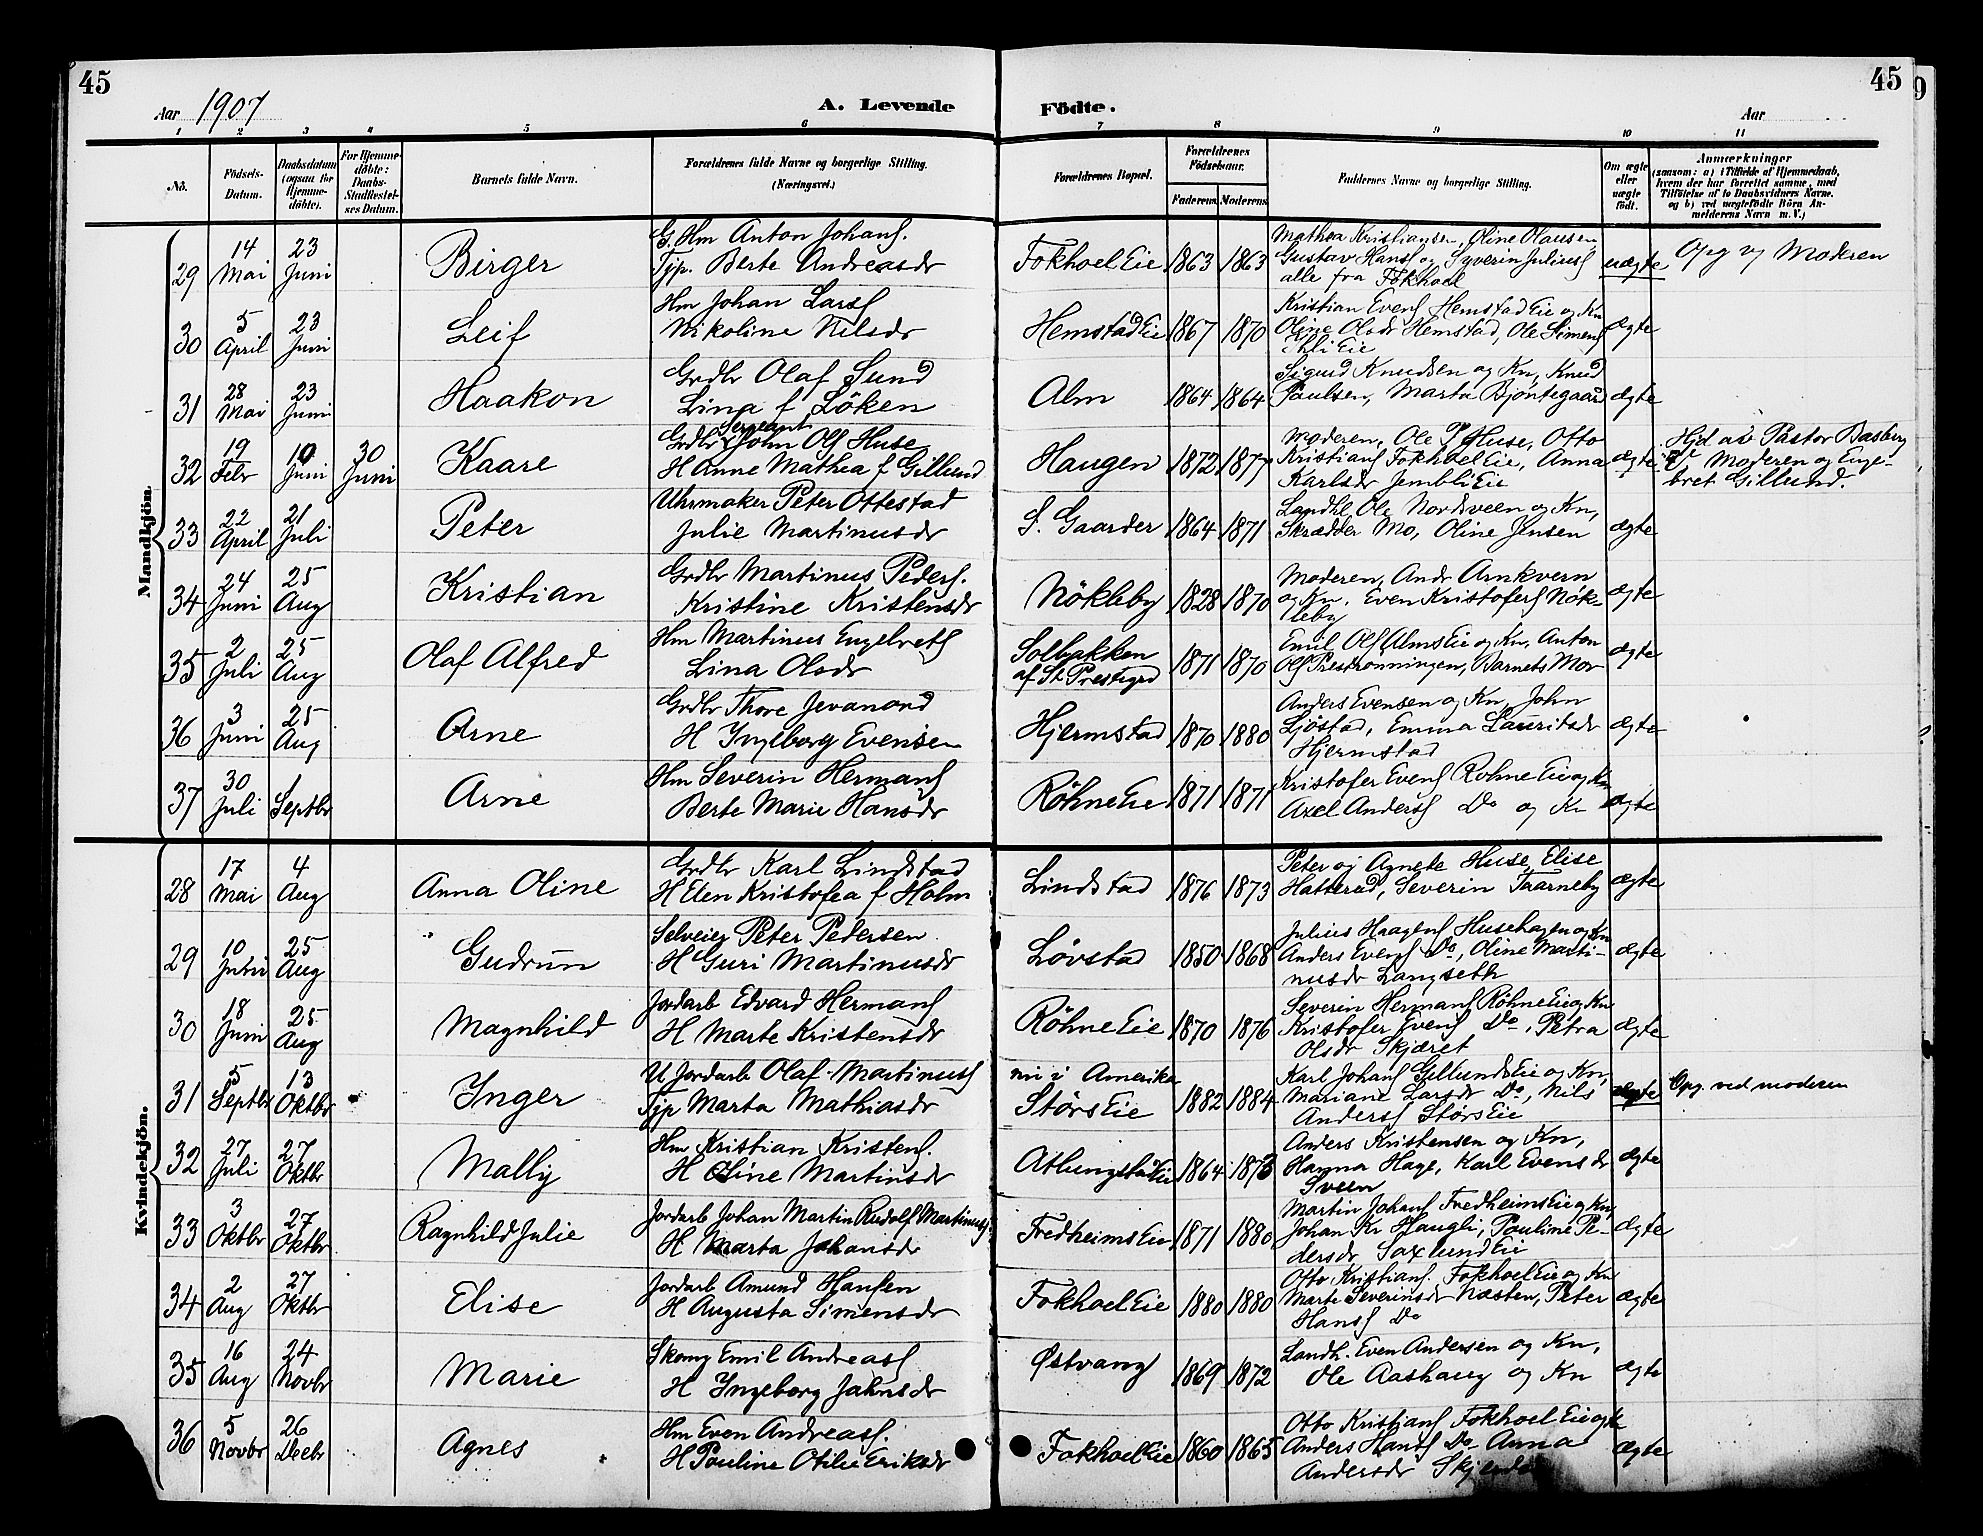 45
45
Aar 1907
A. Levende Födte.
Aar
1 2 3 4 5 6 7 8 9 10 11
No.
Födsels-Datum.
Daabsdatum (ogsaa for Hjemme-döbte).
For Hjemme-döbte: Daabs-Stadfæstel-ses Datum.
Barnets fulde Navn.
Forældrenes fulde Navne og borgerlige Stilling. (Næringsvei.)
Forældrenes Bopæl.
Forældrenes Födselsaar.
Faderens. Moderens.
Faddernes Navne og borgerlige Stilling.
Om ægte eller uægte födt.
Anmærkninger
(saasom: a) i Tilfælde af Hjemmedaab,
hvem der har forrettet samme, med
Tilföielse af to Daabsvidners Navne.
og b) ved uægtefödte Börn An-
melderens Navn m. V.)
Mandkjön.
29 14 Mai 23 Juni Birger
G. Hm Anton Johans.
Tjp. Berte Andreasdr
Fokhoel Eie 1863 1863
Mathea Kristiansen, Oline Olausen
Gustav Hansf og Syverin Juliusf
alle fra Fokhoel
uægte
Opg v Moderen
30 5 April 23 Juni Leif
Hm Johan Larsf
Nikoline Nilsdr
Hemstad Eie 1867 1870
Kristian Evensf Hemstad Eie og Kn
Oline Olsdr Hemstad, Ole Simensf
Ihli Eie
ægte
31 28 Mai 23 Juni Haakon
Grdbr Olaf Sund
Lina f Löken
Alm 1864 1864
Sigurd Knudsen og Kn, Knud
Paulsen, Marta Bjöntegaard
ægte
32 19 Febr 10 Juni 30 Juni Kaare
Sergeant
Grdbr John Olsf Huse
H Anne Mathea f Gillund
Haugen 1872 1877
Moderen, Ole P Huse, Otto
Kristiansf Fokhoel Eie, Anna
Karlsdr Jembli Eie
ægte
Hjd av Pastor Basberg
Moderen og Enge-
bret Gillund.
33 22 April 21 Juli Peter
Uhrmaker Peter Ottestad
Julie Martinusdr
S. Gaarder 1864 1871
Landh. Ole Nordsveen og Kn,
Skrædder Mo, Oline Jensen
ægte
34 24 Juni 25 Aug Kristian
Grdbr Martinus Peders.
Kristine Kristensdr
Nökleby 1828 1870
Moderen, Andr Arnkvern
og Kn. Even Kristofersf Nök-
leby
ægte
35 2 Juli 25 Aug Olaf Alfred
Hm Martinus Engelbretsf
Lina Olsdr
Solbakken
af St. Prestegrd 1871 1870
Emil Olsf Alms Eie og Kn, Anton
Olsf Prestrønningen, Barnets Mor
ægte
36 3 Juni 25 Aug Arne
Grdbr Thore Jevanord
H Ingeborg Evensen
Hjermstad 1870 1880
Anders Evensen og Kn, John
Sjöstad, Emma Lauritsdr
Hjermstad
ægte
37 30 Juli Septbr Arne
Hm Severin Hermansf
Berte Marie Hansdr
Röhne Eie 1871 1871
Kristofer Evensf Rohne Eie og Kn
Axel Andersf Do og Kn
ægte
Kvindekjön.
28 17 Mai 4 Aug Anna Oline
Grdbr Karl Lindstad
H Elen Kristofea f Holm
Lindstad 1876 1873
Peter og Agnete Huse, Elise
Hatterud, Severin Taarneby
ægte
29 10 Juni 25 Aug Gudrun
Selveier Peter Pedersen
H Guri Martinusdr
Lövstad 1850 1868
Julius Haagensf Husehagen og Kn
Anders Evensf Do, Oline Marti-
nusdr Langseth
ægte
30 18 Juni 25 Aug Magnhild
Jordarb Edvard Hermansf
H Marte Kristensdr
Röhne Eie 1870 1876
Severin Hermansf Röhne Eie og Kn
Kristofer Evensf Do, Petra
Olsdr Skjæret
ægte
31 5 Septbr 13 Oktbr Inger
U Jordarb Olaf Martinusf
Tjp Marta Mathiasdr
nu i Amerika
Störs Eie 1882 1884
Karl Johansf Gillunds Eie og Kn,
Mariane Larsdr Do, Nils
Andersf Störs Eie
uægte
Opg. ved moderen
32 27 Juli 27 Oktbr Mally
Hm Kristian Kristens.
H Oline Martinsdr
Atlungstad Eie 1864 1873
Anders Kristensen og Kn,
Hanna Hage, Karl Evensdr
Sveen
ægte
33 3 Oktbr 27 Oktbr Ragnhild Julie
Jordarb Johan Martin Rudolf Martinusf
H Marta Johansdr
Fredheims Eie 1871 1880
Martin Johansf Fredheims Eie og Kn,
Johan Kr Haugli, Pauline Pe-
dersdr Saxlund Eie
ægte
34 2 Aug 27 Oktbr Elise
Jordarb Amund Hansen
H Augusta Simensdr
Fokhoel Eie 1880 1880
Otto Kristians. Fokhoel Eie og Kn
Marte Severinsdr Næsten, Peter
Hansf Do
ægte
35 16 Aug 24 Novbr Marie
Skomg Emil Andreasf
H Ingeborg Jahnsdr
Østvang 1869 1872
Landh. Even Andersen og Kn,
Ole Aashaug og Kn
ægte
36 5 Novbr 26 Decbr Agnes
Hm Even Andreasf.
H Pauline Otilie Eriksdr
Fokhoel Eie 1860 1865
Otto Kristiansf Fokhoel Eie og Kn
Anders Hansf Do Anna
Andersdr
ægte